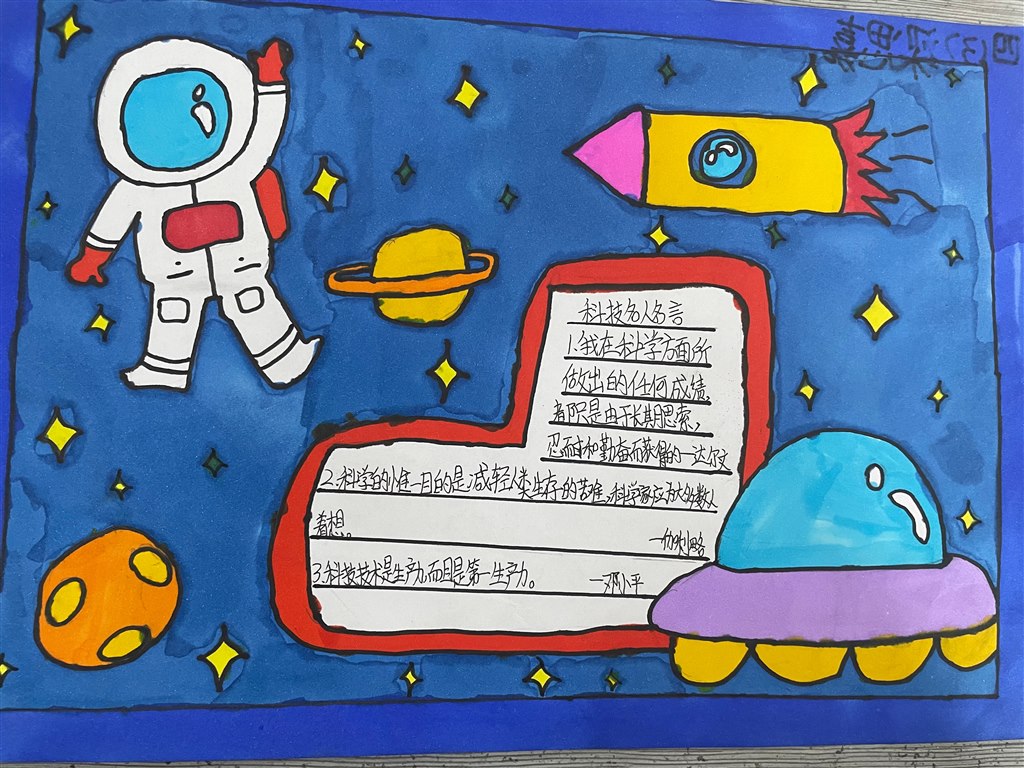 科技名人名言
1.我在科学方面所
做出的任何成绩,
都只是由于长期思索,
忍耐和勤奋而获得的一达尔文
2.科学的唯一目的是减轻人类生存的苦难,科学家应为大多数人
着想。
一伽利略
3.科教技术是生产力,而且是第一生产力。
一邓小平
四(3)梁思